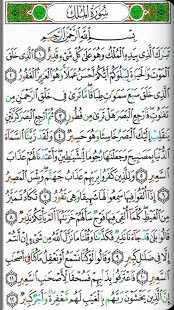 سُورَةُ الْمُلْكِ
بِسْمِ اللَّهِ الرَّحْمَٰنِ الرَّحِيمِ
تَبَٰرَكَ الَّذِي بِيَدِهِ الْمُلْكُ وَهُوَ عَلَىٰ كُلِّ شَيْءٍ قَدِيرٌ ﴿١﴾ الَّذِي خَلَقَ
الْمَوْتَ وَالْحَيَوٰةَ لِيَبْلُوَكُمْ أَيُّكُمْ أَحْسَنُ عَمَلًا وَهُوَ الْعَزِيزُ الْغَفُورُ ﴿٢﴾
الَّذِي خَلَقَ سَبْعَ سَمَٰوَٰتٍ طِبَاقًا مَّا تَرَىٰ فِي خَلْقِ الرَّحْمَٰنِ مِن
تَفَٰوُتٍ فَارْجِعِ الْبَصَرَ هَلْ تَرَىٰ مِن فُطُورٍ ﴿٣﴾ ثُمَّ ارْجِعِ الْبَصَرَ كَرَّتَيْنِ
يَنقَلِبْ إِلَيْكَ الْبَصَرُ خَاسِئًا وَهُوَ حَسِيرٌ ﴿٤﴾ وَلَقَدْ زَيَّنَّا السَّمَاءَ
الدُّنْيَا بِمَصَٰبِيحَ وَجَعَلْنَٰهَا رُجُومًا لِّلشَّيَٰطِينِ وَأَعْتَدْنَا لَهُمْ عَذَابَ
السَّعِيرِ ﴿٥﴾ وَلِلَّذِينَ كَفَرُوا بِرَبِّهِمْ عَذَابُ جَهَنَّمَ وَبِئْسَ الْمَصِيرُ ﴿٦﴾
إِذَا أُلْقُوا فِيهَا سَمِعُوا لَهَا شَهِيقًا وَهِيَ تَفُورُ ﴿٧﴾ تَكَادُ تَمَيَّزُ
مِنَ الْغَيْظِ كُلَّمَا أُلْقِيَ فِيهَا فَوْجٌ سَأَلَهُمْ خَزَنَتُهَا أَلَمْ يَأْتِكُمْ نَذِيرٌ ﴿٨﴾
قَالُوا بَلَىٰ قَدْ جَاءَنَا نَذِيرٌ فَكَذَّبْنَا وَقُلْنَا مَا نَزَّلَ اللَّهُ مِن شَيْءٍ إِنْ أَنتُمْ
إِلَّا فِي ضَلَٰلٍ كَبِيرٍ ﴿٩﴾ وَقَالُوا لَوْ كُنَّا نَسْمَعُ أَوْ نَعْقِلُ مَا كُنَّا فِي أَصْحَٰبِ
السَّعِيرِ ﴿١٠﴾ فَاعْتَرَفُوا بِذَنبِهِمْ فَسُحْقًا لِّأَصْحَٰبِ السَّعِيرِ ﴿١١﴾
إِنَّ الَّذِينَ يَخْشَوْنَ رَبَّهُم بِالْغَيْبِ لَهُم مَّغْفِرَةٌ وَأَجْرٌ كَبِيرٌ ﴿١٢﴾